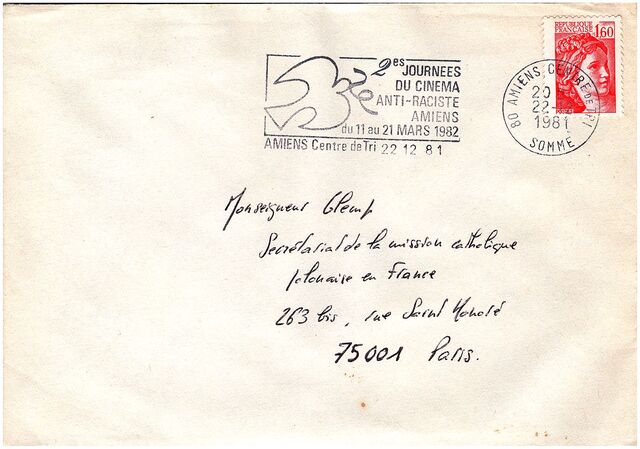 REPUBLIQUE
FRANÇAISE 1,60
2es JOURNEES
DU CINEMA
ANTI-RACISTE
AMIENS
du 11 au 21 MARS 1982
AMIENS Centre de Tri 22 12 81
80 AMIENS CENTRE DE TRI
20
22-
1981
SOMME
Monseigneur Glemp
Secrétariat de la mission catholique
polonaise en France
263 bis, rue Saint Honoré
75001 Paris.